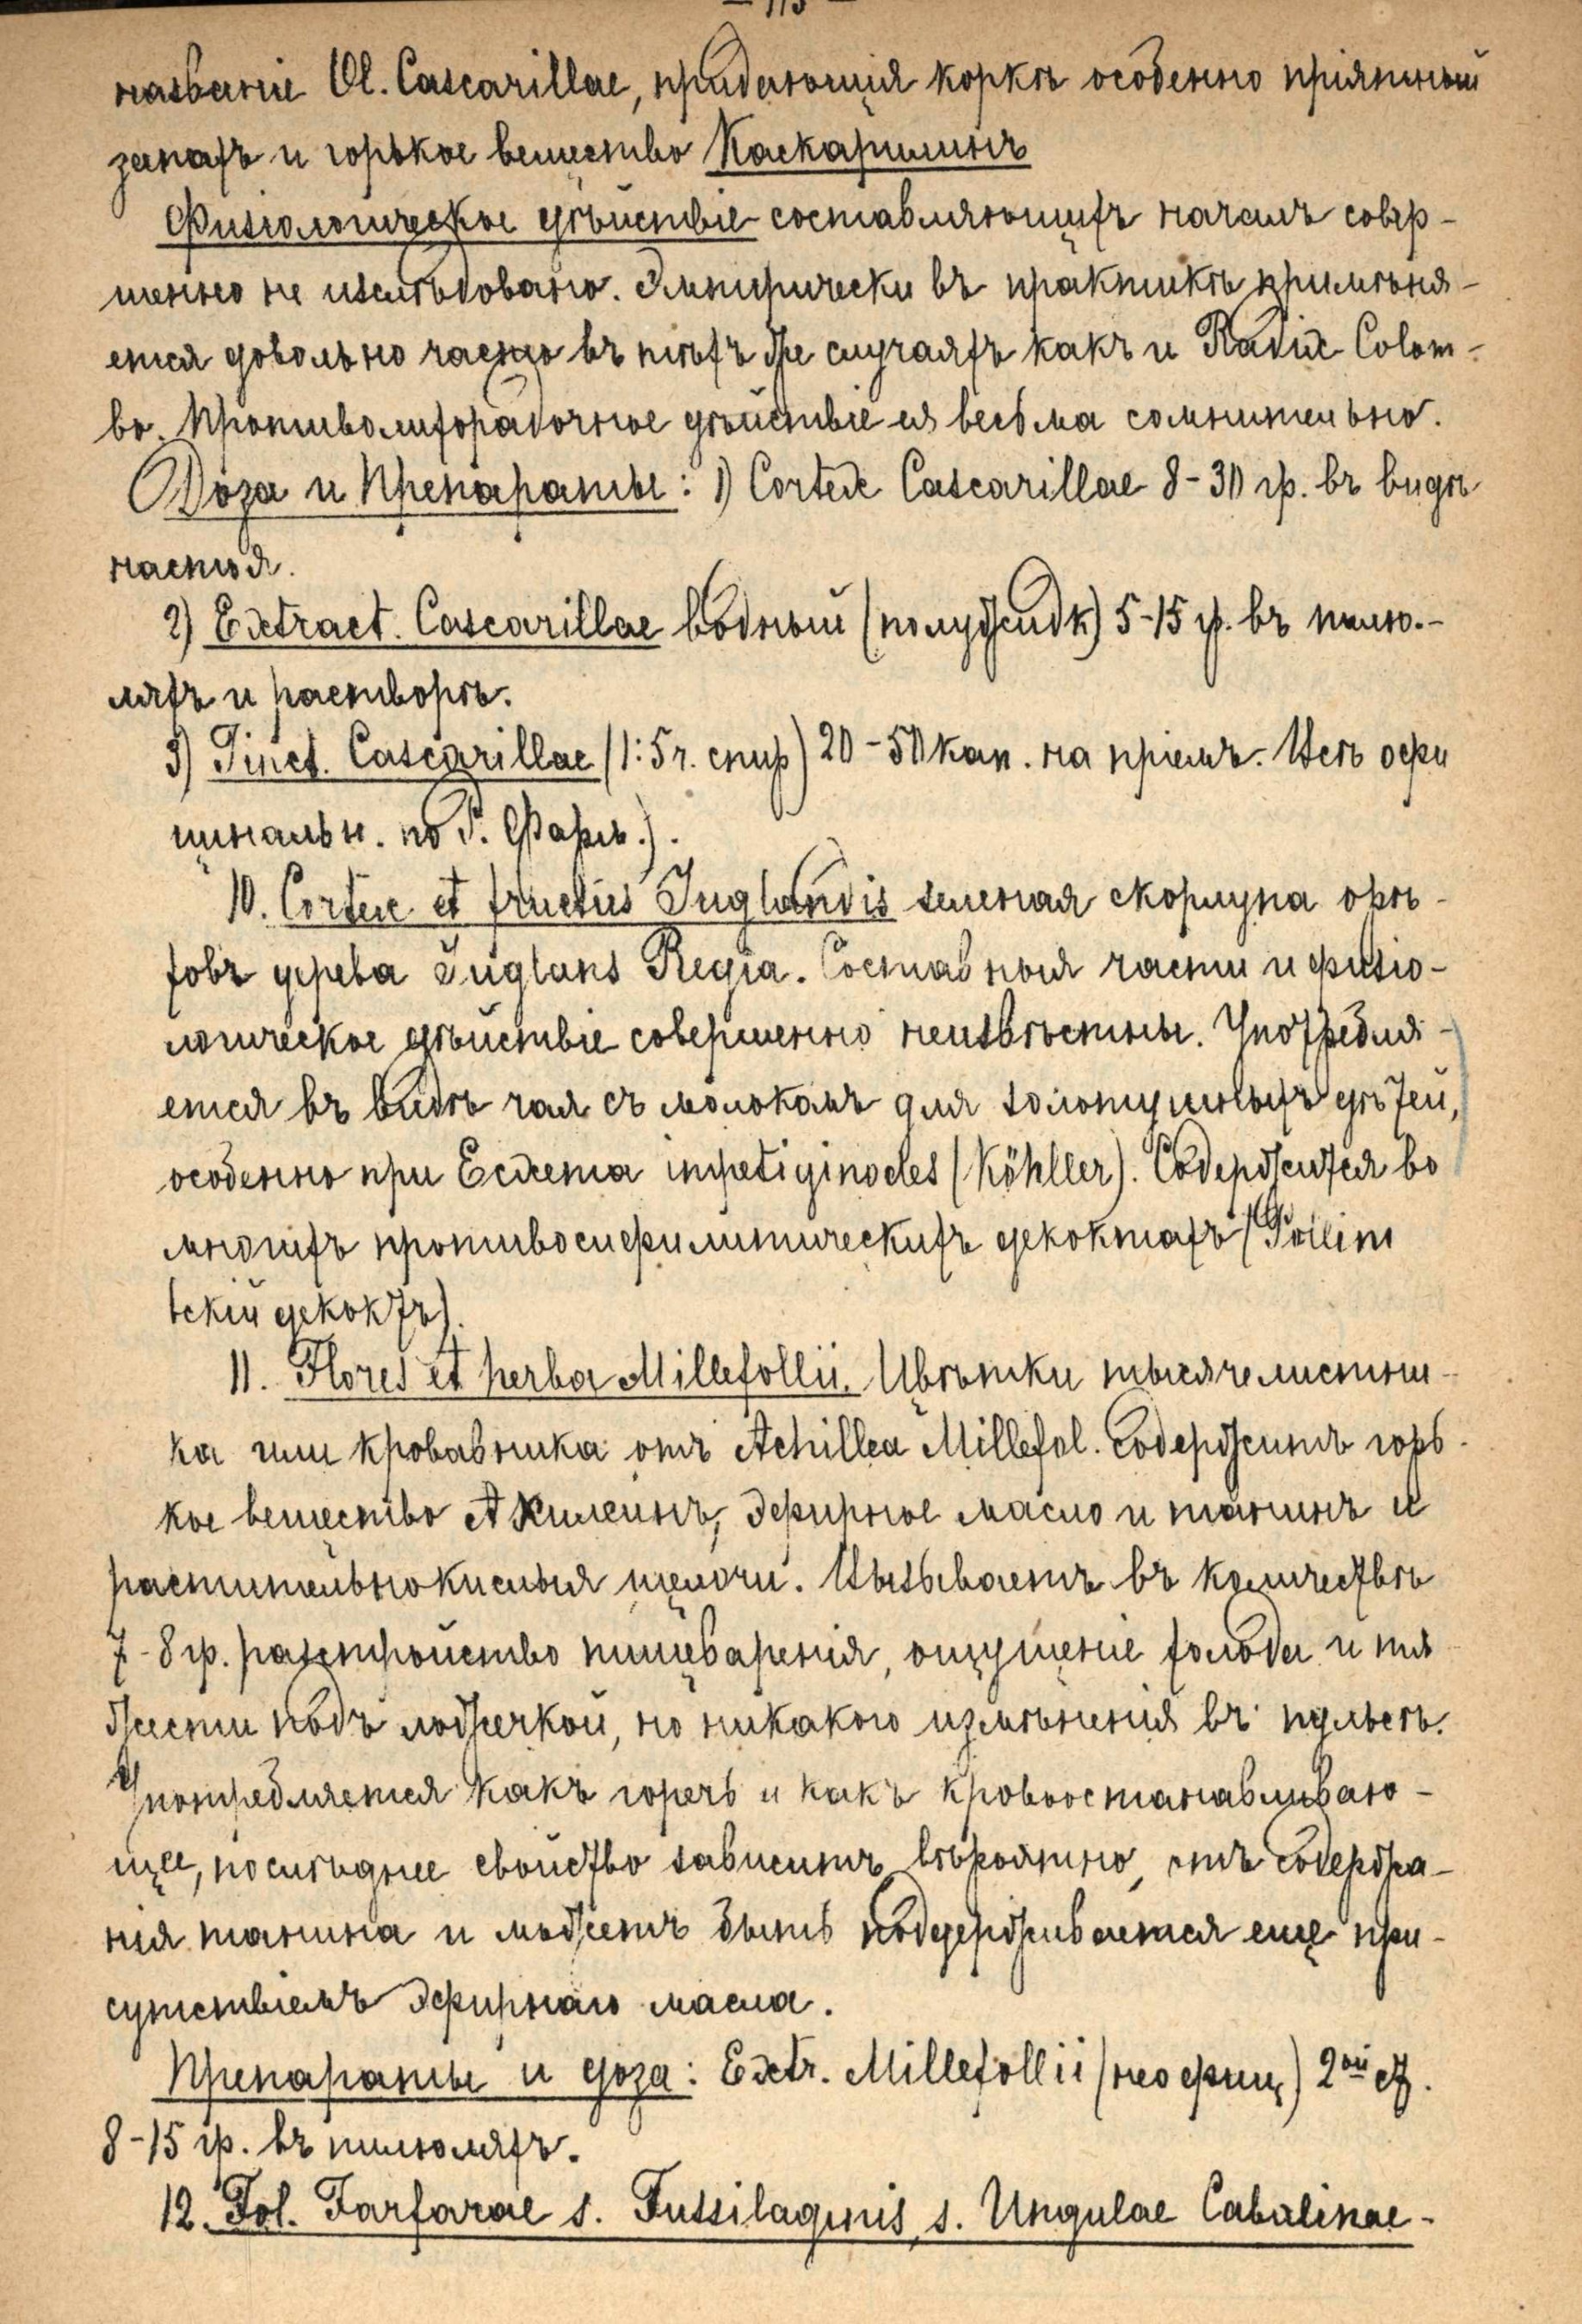 — 113 —
названіе Ol. Cascarillae, придающія коркѣ особенно пріятный
запахъ и горькое вещество Каскарилинъ
Физіологическое дѣйствіе составляющихъ началъ совер-
шенно не изслѣдовано. Эмпирически въ практикѣ примѣня-
ется довольно часто въ тѣхъ же случаяхъ какъ и Radix Colom-
bo. Противолихорадочное дѣйствіе ея весьма сомнительно.
Доза и Препараты: 1) Cortex Cascarillae 8-30 гр. въ видѣ
настоя.
2) Extract. Cascarillae водный (полужидк) 5-15 гр. въ пилю.-
ляхъ и растворѣ.
3) Tinct. Cascarillae (1:5 ч. спир) 20-50 кап. на пріемъ. Всѣ офи
цинальн. по Р. Фарм.).
10. Cortex et fructus Juglandis зеленая скорлупа орѣ-
ховъ дерева Juglans Regia. Составныя части и физіо-
логическое дѣйствіе совершенно неизвѣстны. Употребля-
ется въ видѣ чая съ молокомъ для золотушныхъ дѣтей,
особенно при Eczema impetiginodes (Köhller). Содержится во
многихъ противосифилитическихъ декоктахъ (Pollini
скій декоктъ).
11. Flores et herba Millefollii. Цвѣтки тысячелистни-
ка или кровавника отъ Achillea Millefol. Содержитъ горь-
кое вещество Ахилеинъ, эфирное масло и танинъ и
растительнокислыя щелочи. Вызываетъ въ количествѣ
7-8 гр. разстройство пищеваренія, ощущеніе голода и тя
жести подъ ложечкой, но никакого измѣненія въ пульсѣ.
Употребляется какъ горечь и какъ кровоостанавливаю-
щее, послѣднее свойство зависитъ, вѣроятно, отъ содержа-
нія танина и можетъ быть поддерживается еще при-
сутствіемъ эфирнаго масла.
Препараты и доза: Extr. Millefollii (неофиц) 2ой ст.
8-15 гр. въ пилюляхъ.
12. Fol. Farfarae s. Tussilaginis, s. Ungulae Cabalinae-